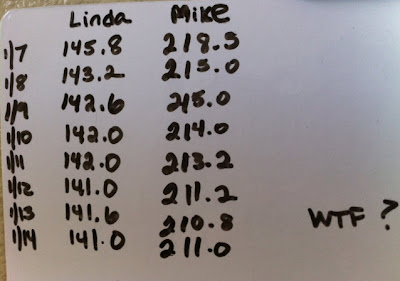 Linda Mike
1/7 145.8 218.5
1/8 143.2 215.0
1/9 142.6 215.0
1/10 142.0 214.0
1/11 142.0 213.2
1/12 141.0 211.2
1/13 141.6 210.8 WTF ?
1/14 141.0 211.0